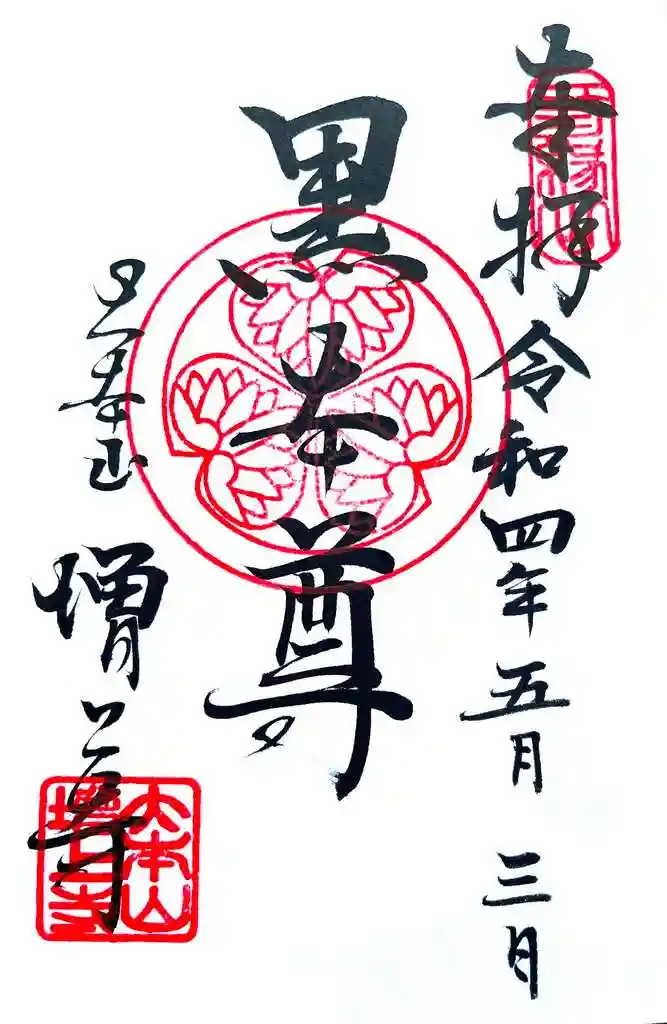 奉拝 令和四年五月三日
黒本尊
大本山 増上寺
三縁山
大本山
増上寺